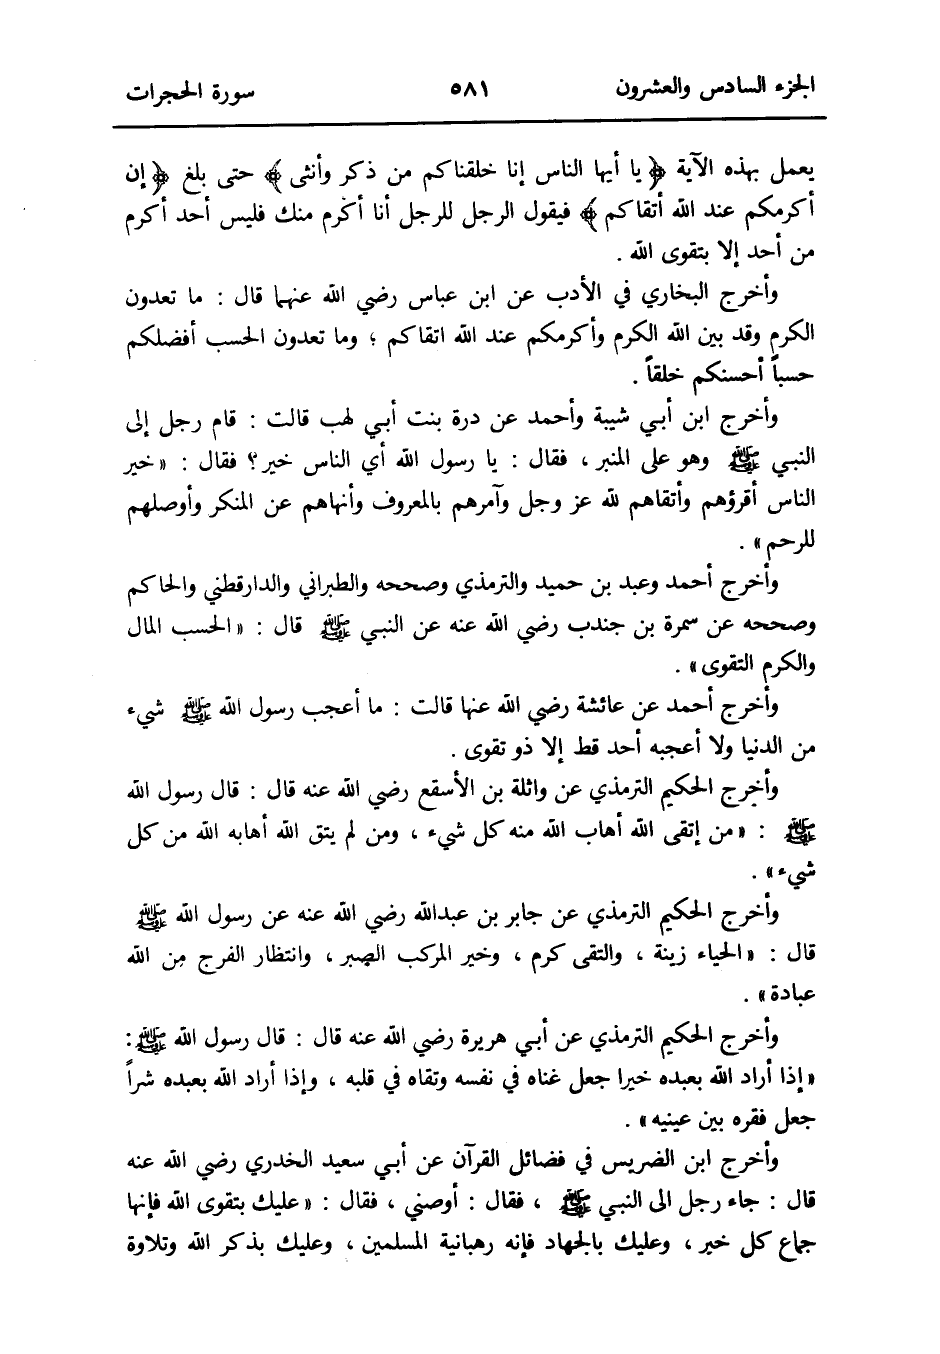 الجزء السادس والعشرون ٥٨١ سورة الحجرات
يعمل بهذه الآية ﴿ يا أيها الناس إنا خلقناكم من ذكر وأنثى ﴾ حتى بلغ ﴿ إن
أكرمكم عند الله أتقاكم ﴾ فيقول الرجل للرجل أنا أكرم منك فليس أحد أكرم
من أحد إلا بتقوى الله .
وأخرج البخاري في الأدب عن ابن عباس رضي الله عنهما قال : ما تعدون
الكرم وقد بين الله الكرم وأكرمكم عند الله اتقاكم ؛ وما تعدون الحسب أفضلكم
حسباً أحسنكم خلقاً .
وأخرج ابن أبي شيبة وأحمد عن درة بنت أبي لهب قالت : قام رجل إلى
النبي ﷺ وهو على المنبر ، فقال : يا رسول الله أي الناس خير؟ فقال : « خير
الناس أقرؤهم وأتقاهم لله عز وجل وآمرهم بالمعروف وأنهاهم عن المنكر وأوصلهم
للرحم » .
وأخرج أحمد وعبد بن حميد والترمذي وصححه والطبراني والدارقطني والحاكم
وصححه عن سمرة بن جندب رضي الله عنه عن النبي ﷺ قال : « الحسب المال
والكرم التقوى » .
وأخرج أحمد عن عائشة رضي الله عنها قالت : ما أعجب رسول الله ﷺ شيء
من الدنيا ولا أعجبه أحد قط إلا ذو تقوى .
وأخرج الحكيم الترمذي عن واثلة بن الأسقع رضي الله عنه قال : قال رسول الله
ﷺ : « من إتقى الله أهاب الله منه كل شيء ، ومن لم يتق الله أهابه الله من كل
شيء » .
وأخرج الحكيم الترمذي عن جابر بن عبدالله رضي الله عنه عن رسول الله ﷺ
قال : « الحياء زينة ، والتقى كرم ، وخير المركب الصبر ، وانتظار الفرج من الله
عبادة » .
وأخرج الحكيم الترمذي عن أبي هريرة رضي الله عنه قال : قال رسول الله ﷺ :
« إذا أراد الله بعبده خيرا جعل غناه في نفسه وتقاه في قلبه ، وإذا أراد الله بعبده شراً
جعل فقره بين عينيه » .
وأخرج ابن الضريس في فضائل القرآن عن أبي سعيد الخدري رضي الله عنه
قال : جاء رجل الى النبي ﷺ ، فقال : أوصني ، فقال : « عليك بتقوى الله فإنها
جماع كل خير ، وعليك بالجهاد فإنه رهبانية المسلمين ، وعليك بذكر الله وتلاوة